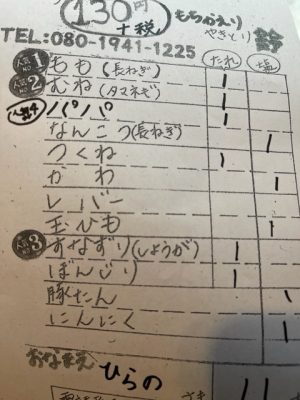 130円
+税
もちかえり
やきとり 鈴
TEL:080-1941-1225
たれ 塩
人気 1 もも(長ねぎ) 1
人気 2 むね(タマネギ) 1
人気4 パパ 1
なんこつ(長ねぎ) 1
つくね 1
かわ 1
レバー
玉ひも 1
人気 3 すなずり(しょうが) 1
ぼんじり 1
豚たん 1
にんにく 1
おなまえ ひらの
11